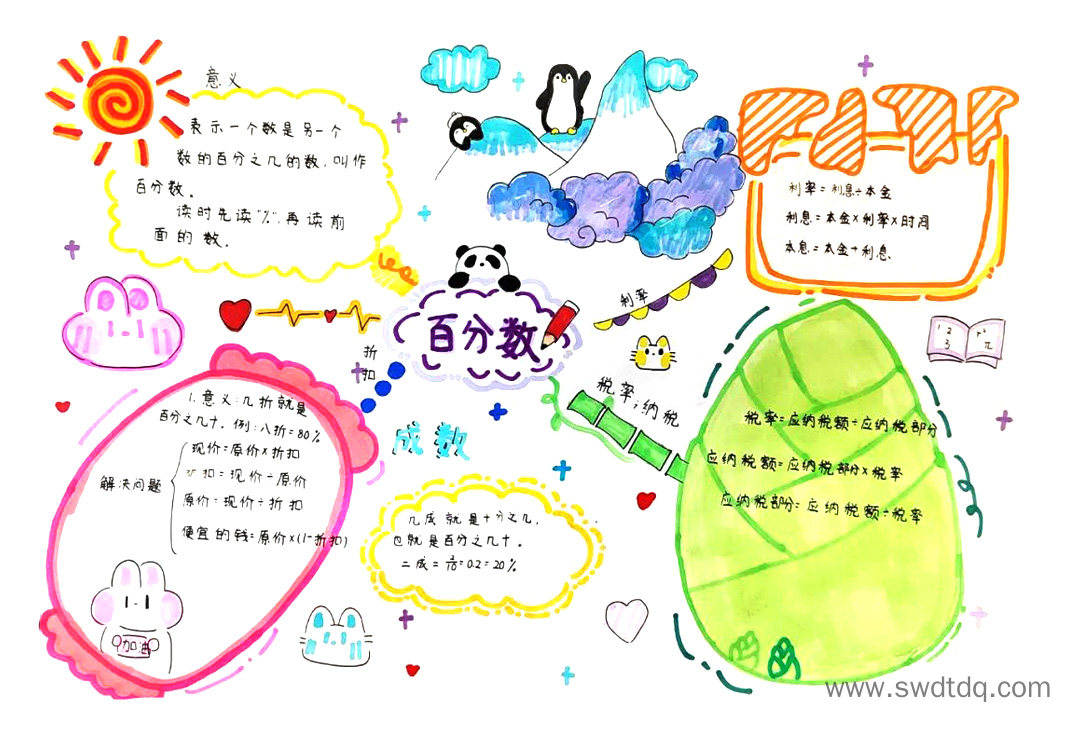 意义
表示一个数是另一个
数的百分之几的数,叫作
百分数。
读时先读"%",再读前
面的数。
利率=利息÷本金
利息=本金×利率×时间
本息=本金+利息
百分数
利率
折
扣
税率;纳税
1.意义:几折就是
百分之几十。例:八折=80%
解决问题
现价=原价×折扣
折扣=现价÷原价
原价=现价÷折扣
便宜的钱=原价×(1-折扣)
加油
成数
几成就是十分之几,
也就是百分之几十。
二成=2/10=0.2=20%
税率=应纳税额÷应纳税部分
应纳税额=应纳税部分×税率
应纳税部分=应纳税额÷税率
1 2
3
π
www.swdtdq.com